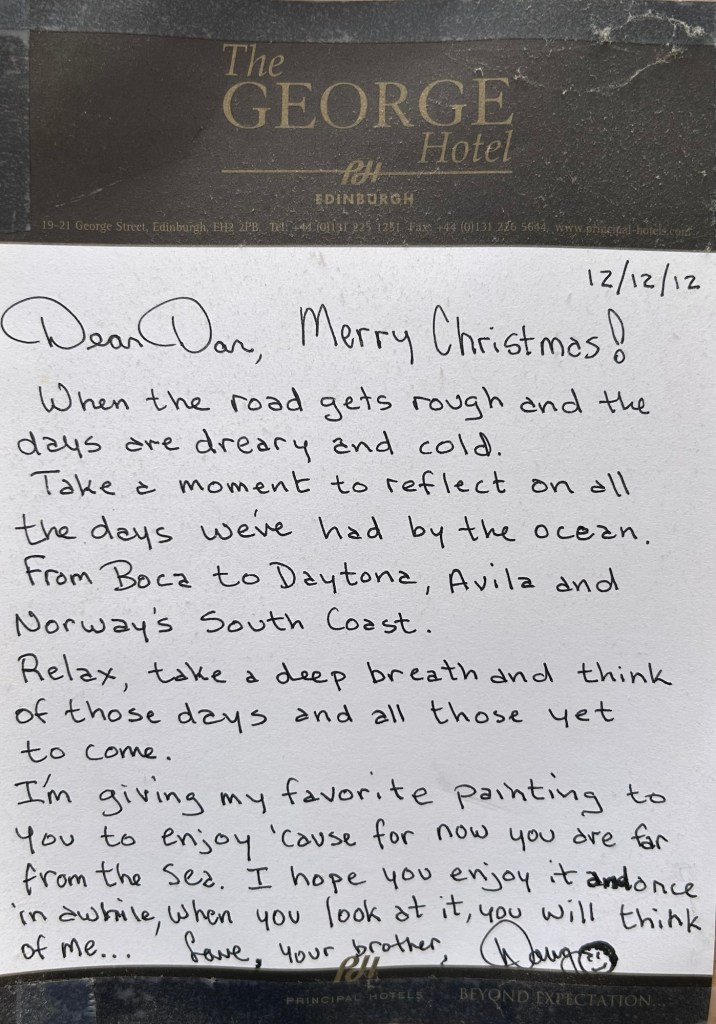 The
GEORGE
Hotel
PH
EDINBURGH
19-21 George Street, Edinburgh, EH2 2PB Tel: +44 (0)131 225 1251 Fax: +44 (0)131 226 5644, www.principal-hotels.com
12/12/12
Dear Dan, Merry Christmas!
When the road gets rough and the
days are dreary and cold.
Take a moment to reflect on all
the days we've had by the ocean.
From Boca to Daytona, Avila and
Norway's South Coast.
Relax, take a deep breath and think
of those days and all those yet
to come.
I'm giving my favorite painting to
you to enjoy 'cause for now you are far
from the sea. I hope you enjoy it and once
in awhile, when you look at it, you will think
of me... Love, your brother, Doug
PH
PRINCIPAL HOTELS BEYOND EXPECTATION...